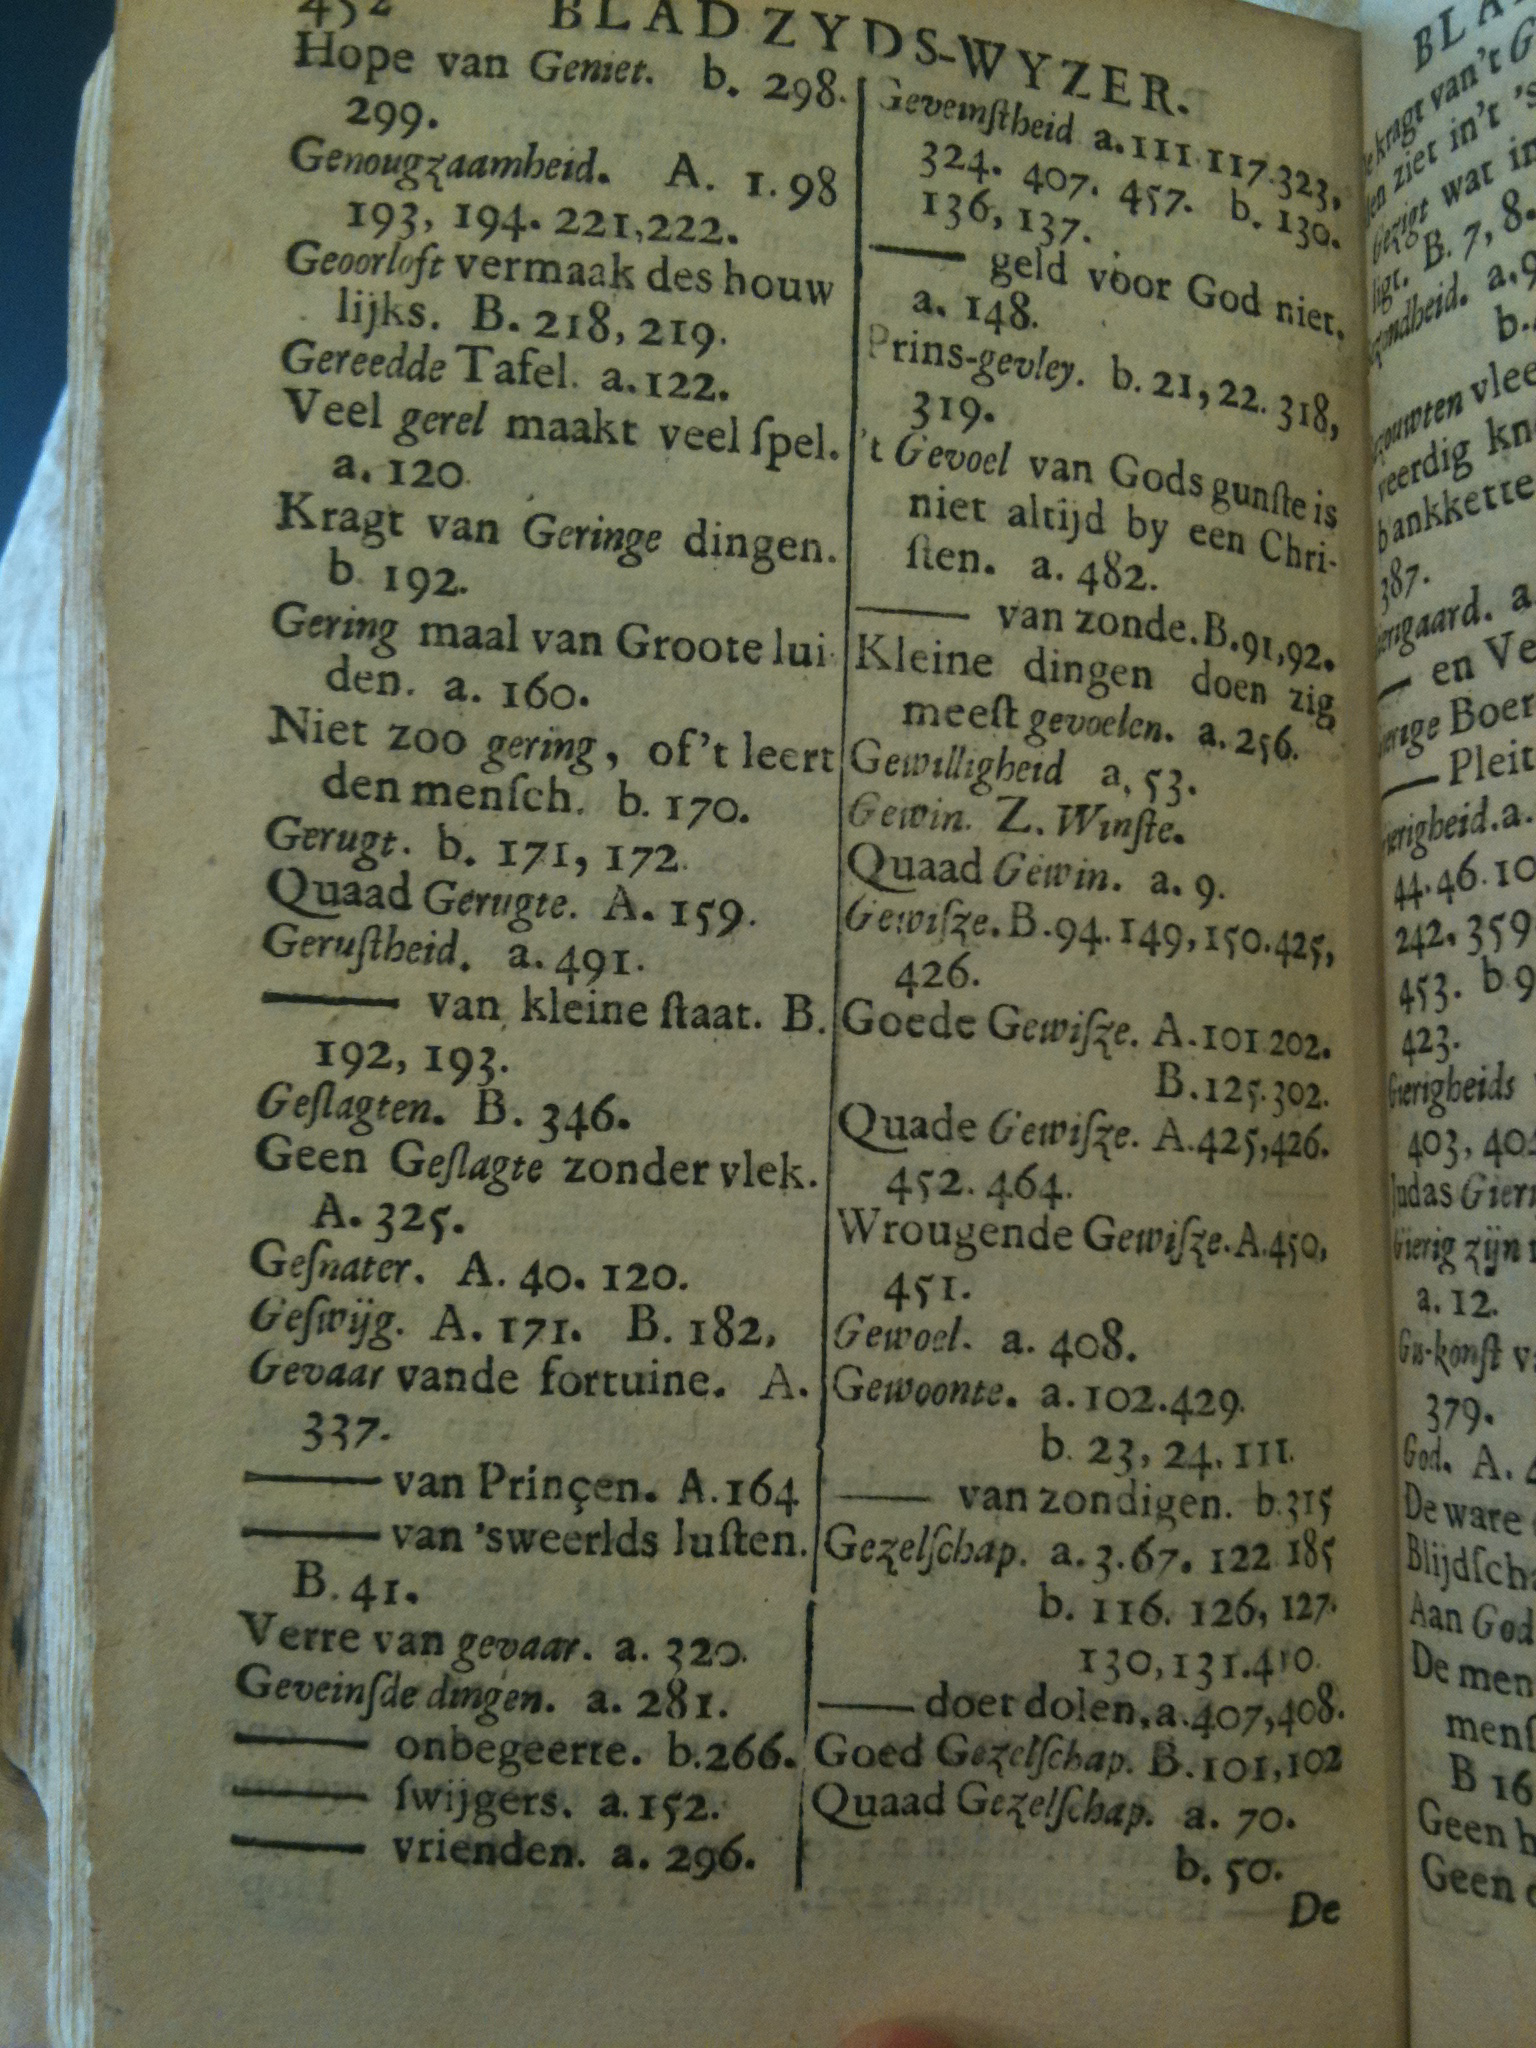 452 BLADZYDS-WYZER.
Hope van Geniet. b. 298.
299.
Genougzaamheid. A. 1. 98
193, 194. 221, 222.
Geoorloft vermaak des houw
lijks. B. 218, 219.
Gereedde Tafel. a. 122.
Veel gerel maakt veel ſpel.
a. 120.
Kragt van Geringe dingen.
b. 192.
Gering maal van Groote lui
den. a. 160.
Niet zoo gering, of't leert
den menſch. b. 170.
Gerugt. b. 171, 172.
Quaad Gerugte. A. 159.
Geruſtheid. a. 491.
—— van kleine ſtaat. B.
192, 193.
Geſlagten. B. 346.
Geen Geſlagte zonder vlek.
A. 325.
Geſnater. A. 40. 120.
Geſwijg. A. 171. B. 182,
Gevaar vande fortuine. A.
337.
—— van Prinçen. A. 164
—— van 'sweerlds luſten.
B. 41.
Verre van gevaar. a. 320.
Geveinſde dingen. a. 281.
—— onbegeerte. b. 266.
—— ſwijgers. a. 152.
—— vrienden. a. 296.
Geveinſtheid a. 111. 117. 323,
324. 407. 457. b. 130.
136, 137.
—— geld voor God niet.
a. 148.
Prins-gevley. b. 21, 22. 318,
319.
't Gevoel van Gods gunſte is
niet altijd by een Chri-
ſten. a. 482.
—— van zonde. B. 91, 92.
Kleine dingen doen zig
meeſt gevoelen. a. 256.
Gewilligheid a, 53.
Gewin. Z. Winſte.
Quaad Gewin. a. 9.
Gewiſze. B. 94. 149, 150. 425,
426.
Goede Gewiſze. A. 101. 202.
B. 125. 302.
Quade Gewiſze. A. 425, 426.
452. 464.
Wrougende Gewiſze. A. 450,
451.
Gewoel. a. 408.
Gewoonte. a. 102. 429.
b. 23, 24. 111.
—— van zondigen. b. 315
Gezelſchap. a. 3. 67. 122 185
b. 116. 126, 127.
130, 131. 410.
—— doet dolen, a. 407, 408.
Goed Gezelſchap. B. 101, 102
Quaad Gezelſchap. a. 70.
b. 50.
De
kragt van't
ziet in't
wat in
B. 7, 8.
a. 9
b.
vlee
veerdig
bankkette
387.
a
—— en Ve
Boer
—— Pleit
44. 46. 10
242, 359
453. b 9
423.
Gierigheids
403, 40
Judas Gier
Gierig zijn
a. 12.
379.
God. A.
De ware
Blijdſch
Aan God
De men
menſ
B 16
Geen
Geen